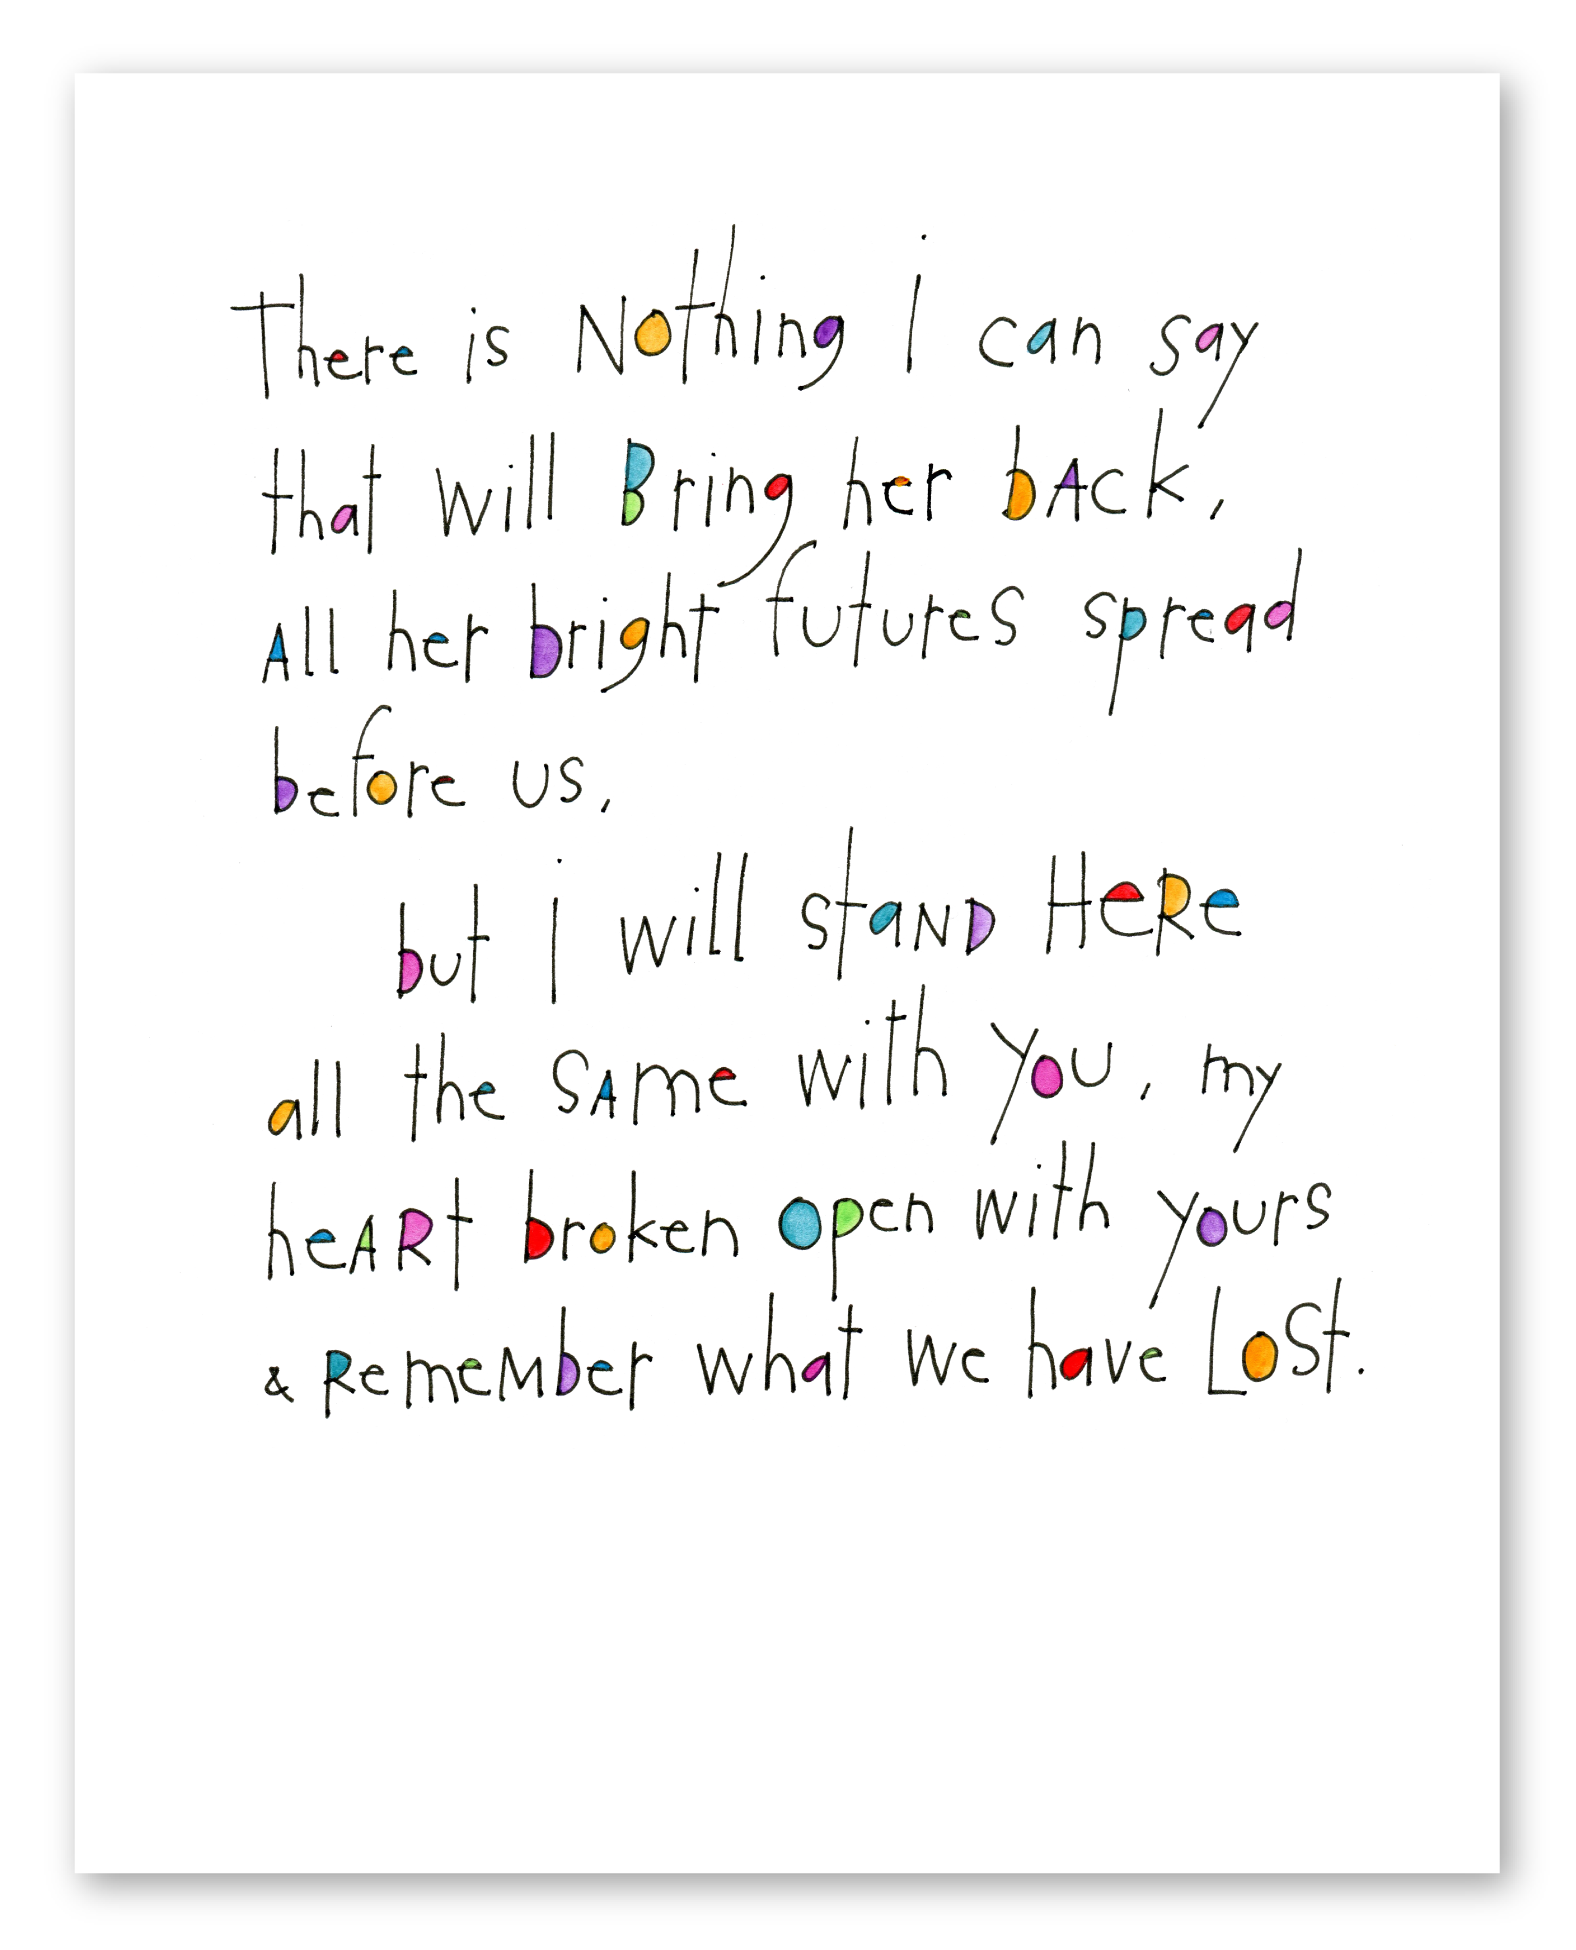 There is Nothing i can say
that will Bring her bAck,
All her bright futures spread
before us,
but i will staND HeRe
all the SAme with you, my
heARt broken open with yours
& RemeMber what we have LoSt.